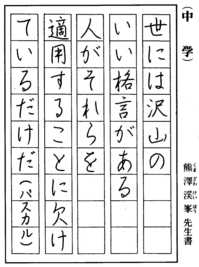 (中学)
世には沢山の
いい格言がある
人がそれらを
適用することに欠け
ているだけだ(パスカル)
熊澤渓峯先生書